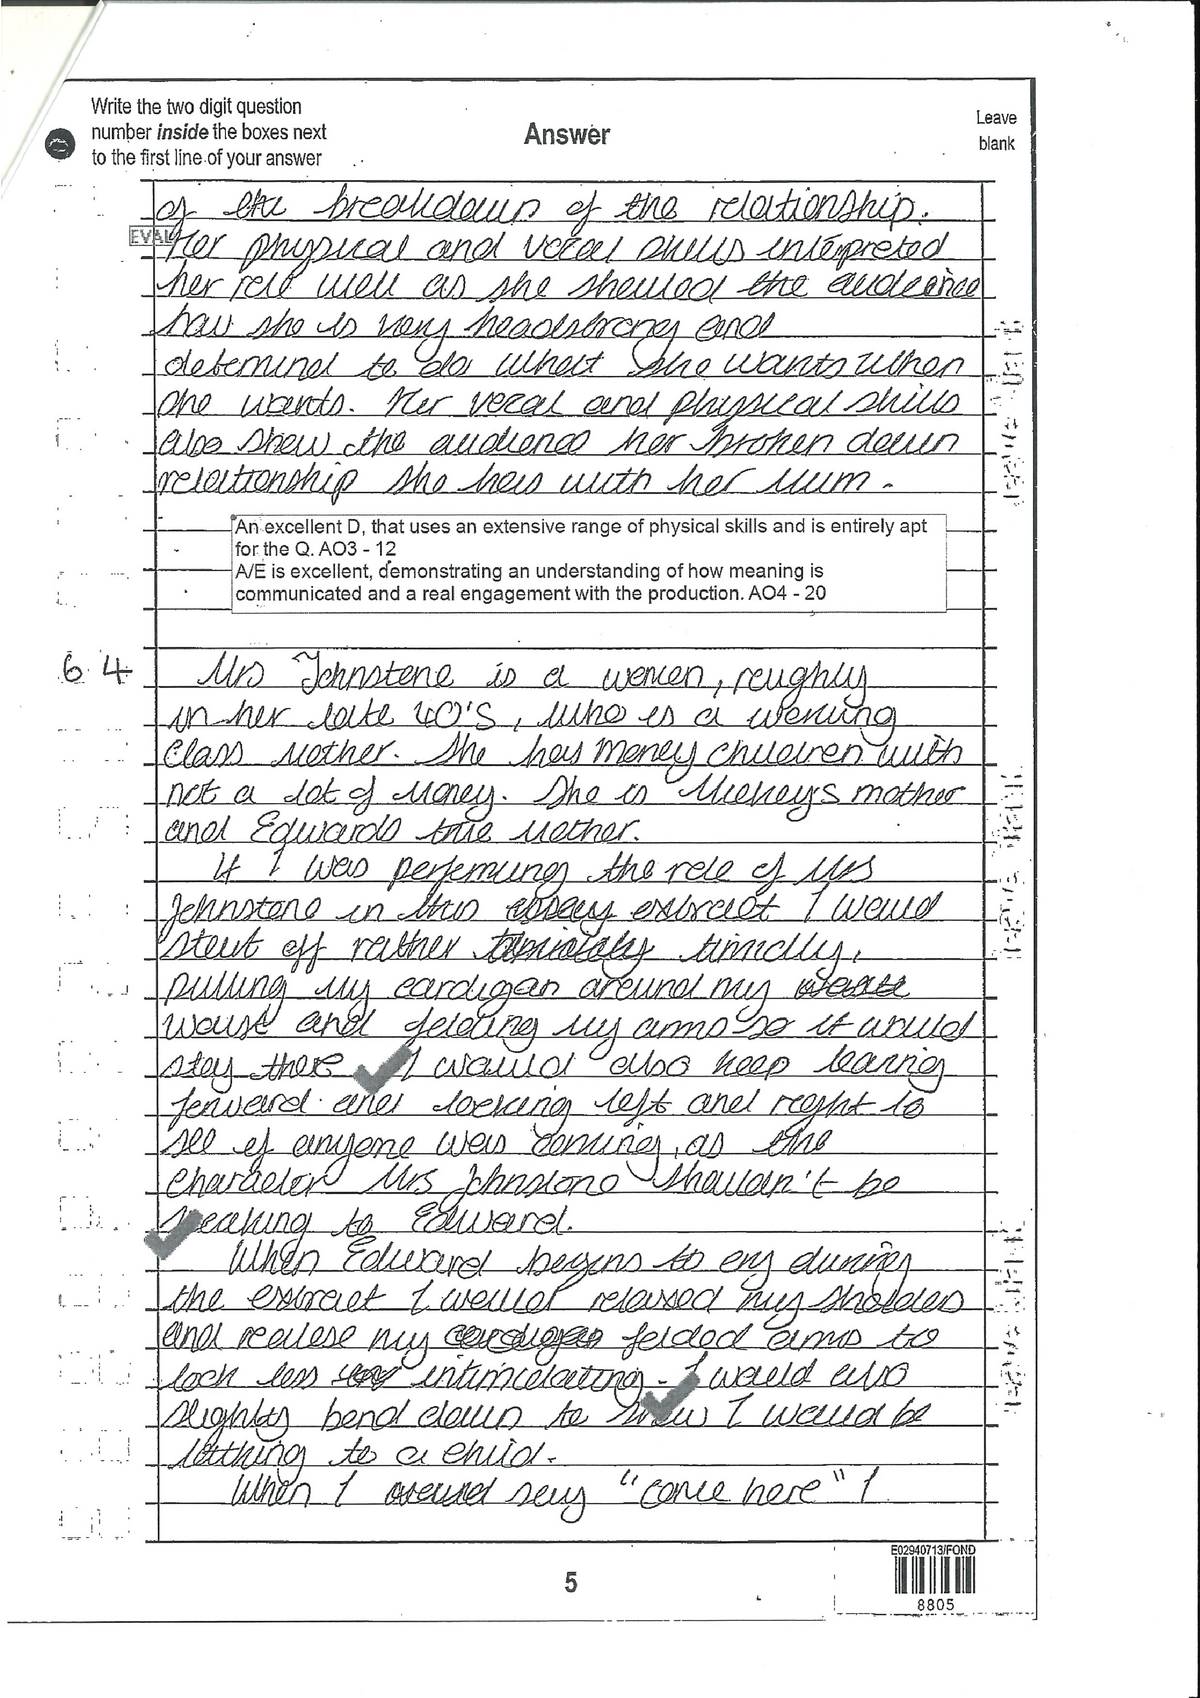 Write the two digit question
number inside the boxes next
to the first line of your answer
Answer
Leave
blank
of the breakdown of the relationship.
EVAL
Her physical and vocal skills interpreted
her role well as she showed the audience
how she is very headstrong and
determind to do what she wants when
she wants. Her vocal and physical skills
also show the audience her broken down
relationship she has with her mum.
An excellent D, that uses an extensive range of physical skills and is entirely apt
for the Q. AO3 - 12
A/E is excellent, demonstrating an understanding of how meaning is
communicated and a real engagement with the production. AO4 - 20
6 4
Mrs Johnstone is a women, roughly
in her late 40's, who is a working
class mother. She has money children with
not a lot of money. She is Mickeys mother
and Edwards true mother.
If I was performing the role of Mrs
Johnstone in this essay extract I would
start off rather timidly,
pulling my cardigan around my
waist and folding my arms so it would
stay there I would also keep leaning
forward and looking left and right to
see if anyone was coming, as the
character Mrs Johnstone shouldn't be
speaking to Edward.
When Edward begins to cry during
the extract I would relaxed my sholders
and realese my cardigan folded arms to
look less intimidating. I would also
slightly bend down to show I would be
talking to a child.
When I would say "come here" I
5
E02940713/FOND
8805